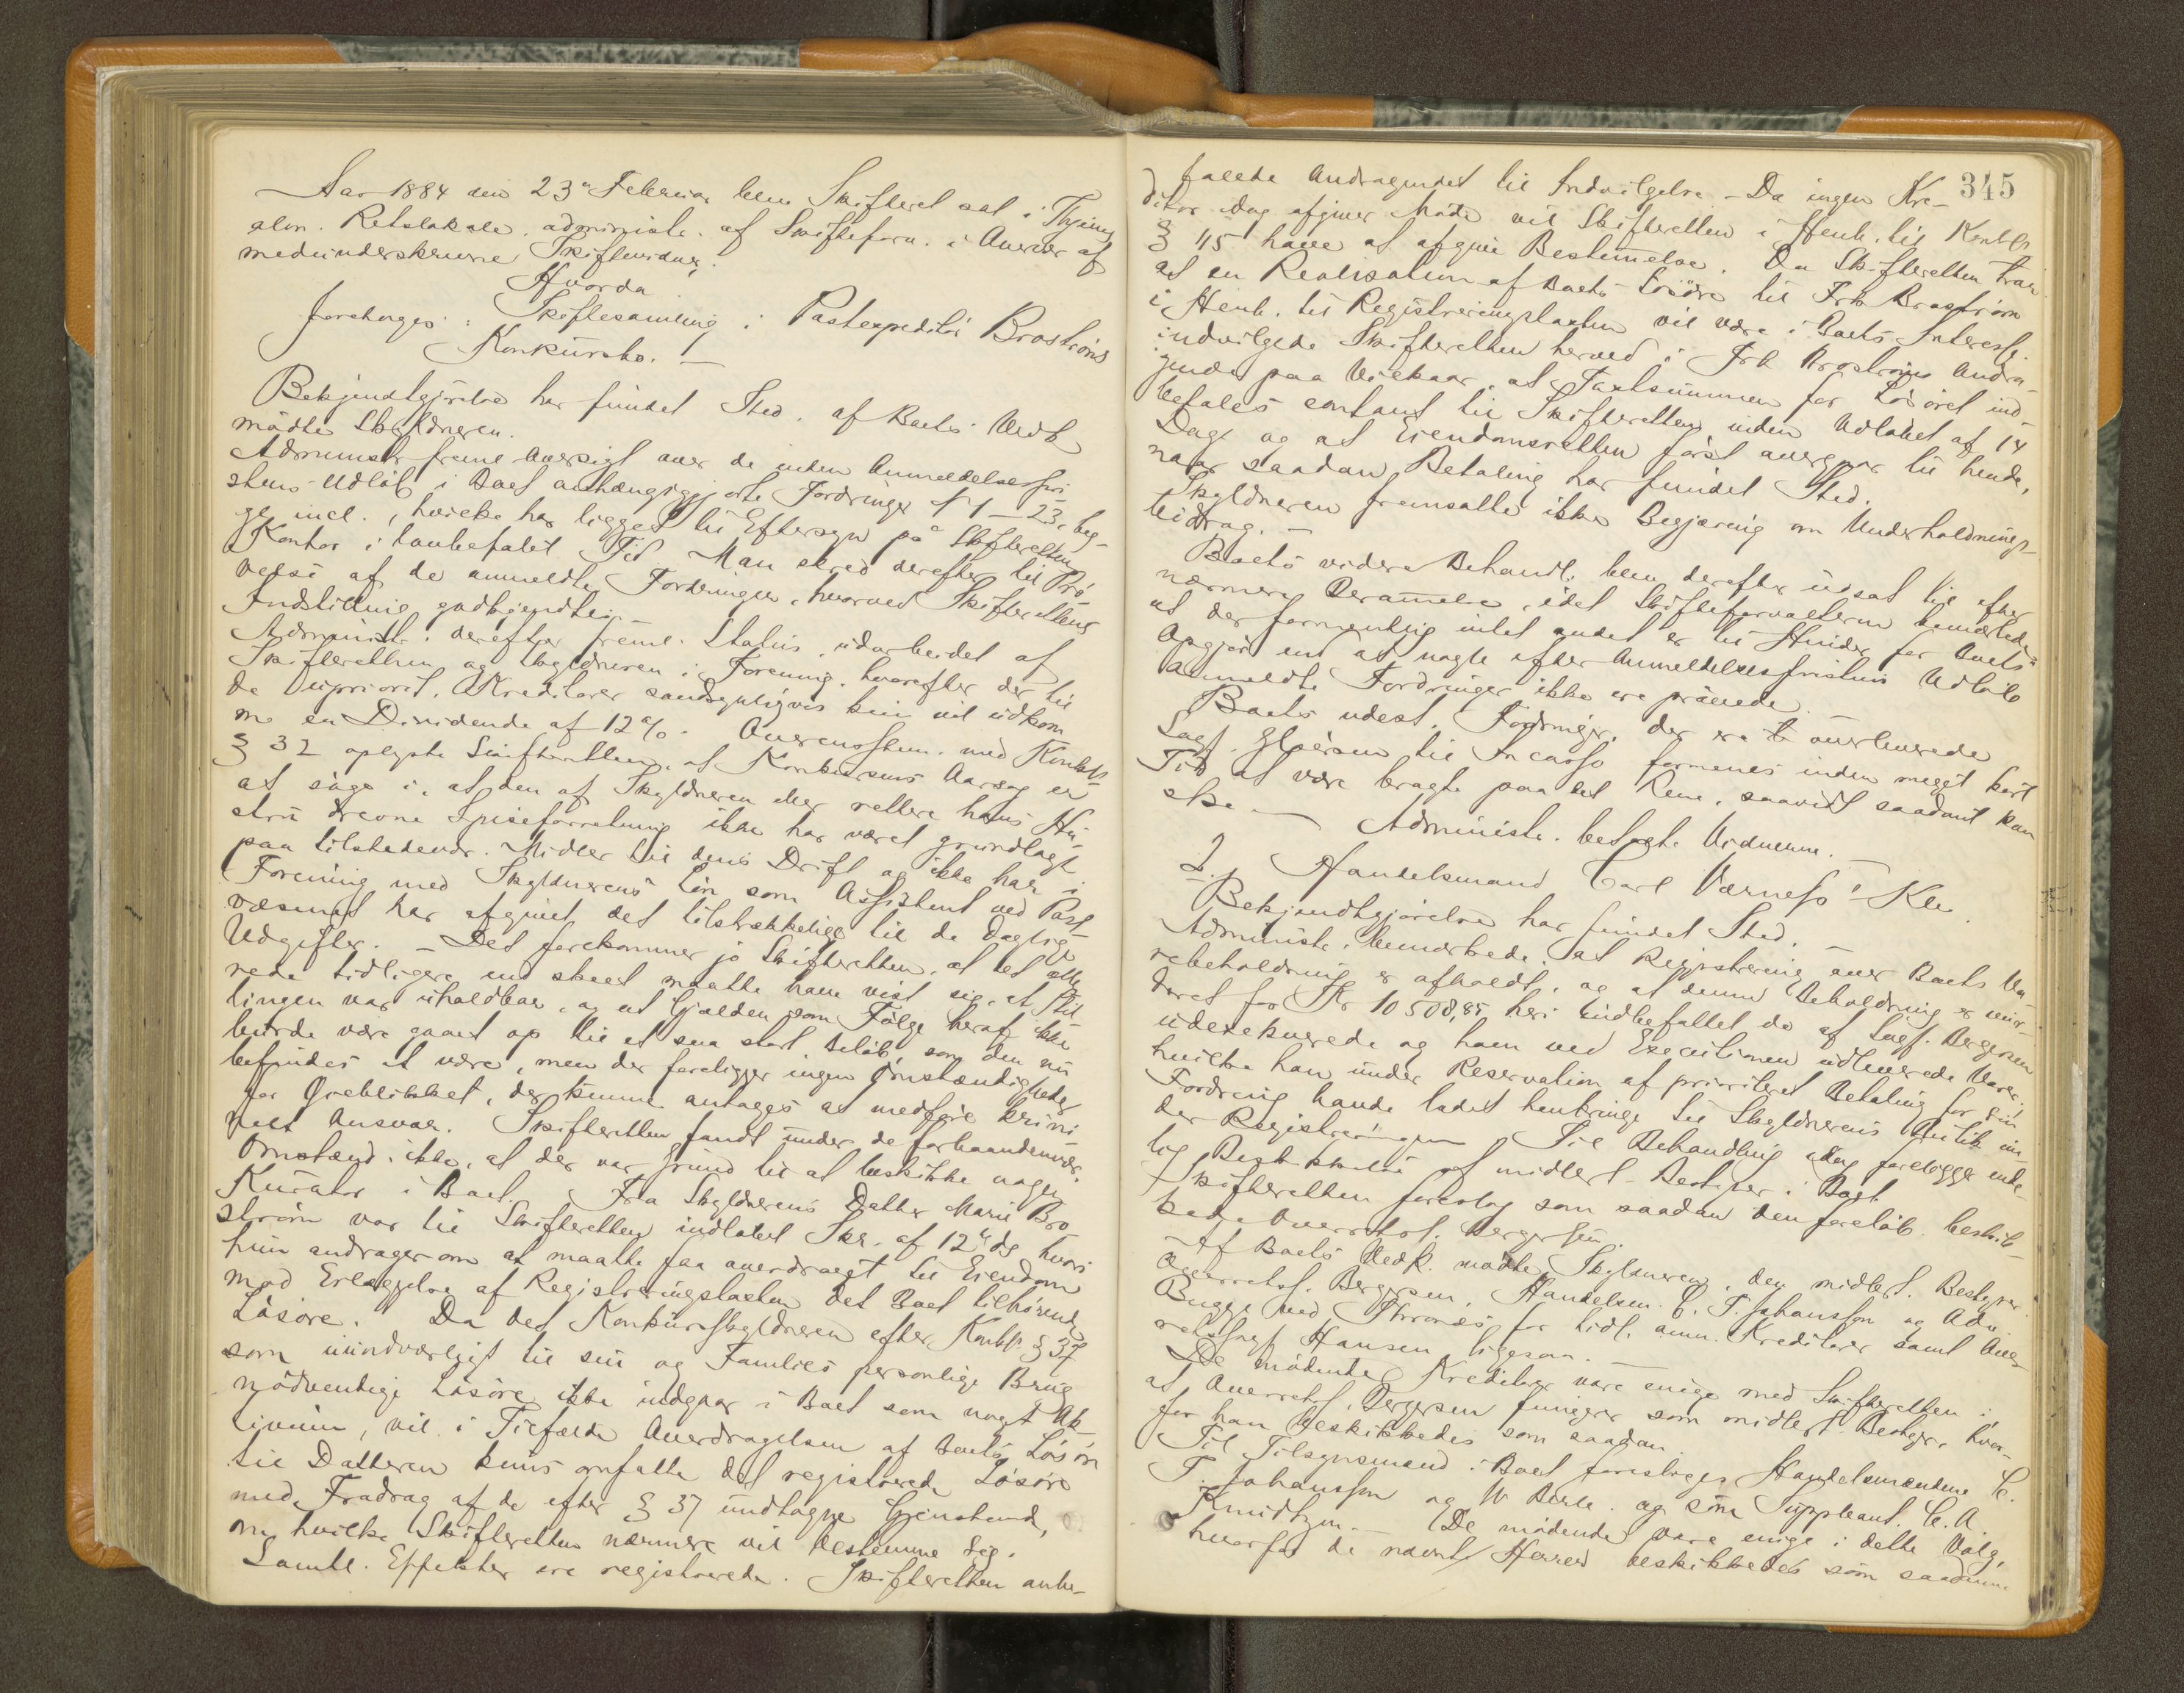 Aar 1884 den 23de Februar blev Skifteret sat i Thjems
alm. Retslokale, administr. af Skifteforv. i Overvær af
medunderskrevne Skiftevidner,
Hvorda
foretoges: Skiftesamling i Postexpeditör Broströms
Konkursbo. —
Bekjendtgjörelse har fundet Sted. af Boets Vedk
mödte Skyldneren.
Administr. freml. Oversigt over de inden Anmeldelsesfri-
stens Udlöb i Boet anhængiggjorte Fordringer № 1 – 23, beg-
ge incl., hvilke har ligget til Eftersyn på Skifterettens
Kontor i lovbefalet Tid. Man skred derefter til Prö-
velse af de anmeldte Fordringer, hvorved Skifterettens
Indstilling godkjendtes. —
Administr. derefter freml. Status, udarbeidet af
Skifteretten og Skyldneren i Forening, hvorefter der til
de upriorit. Kreditorer sandsynligvis kun vil udkom-
me en Dividende af 12 %. Overensstem. med Konkl.
§ 32 oplyste Skifteretten, at Konkursens Aarsag er
at söge i, at den af Skyldneren eller rettere hans Hu-
stru drevne Spiseforretning ikke har været grundlagt
paa tilstedevær. Midler til dens Drift og ikke har i
Forening med Skyldnerens Lön som Assistent ved Post-
væsenet har afgivet det tilstrækkelige til de daglige
Udgifter. — Det forekommer jo Skifteretten, at det alle-
rede tidligere end skeet maatte have vist sig, at Stil-
lingen var uholdbar, og at Gjælden som Fölge heraf ikke
burde være gaaet op til et saa stort Belöb, som den nu
befindes at være, men der foreligger ingen Omstændigheder
for Öieblikket, der kunne antages at medföre krimi-
nelt Ansvar. Skifteretten fandt under de forhaandenvær.
Omstænd. ikke, at der var Grund til at beskikke nogen
Kurator i Boet. Fra Skyldnerens Datter Marie Bro-
ström var til Skifteretten indlöbet Skr. af 12te ds, hvori
hun andrager om at maatte faa overdraget til Eiendom
mod Erlæggelse af Registreringstaxten det Boet tilhörende
Lösöre. Da det Konkursskyldneren efter Konkl. § 37
som uundværligt til sin og Families personlige Brug
nödvendige Lösöre ikke indgaar i Boet som noget Ak-
tivum, vil i Tilfælde Overdragelsen af Boets Lösöre
til Datteren kuns omfatte det registrerede Lösöre
med Fradrag af de efter § 37 undtagne Gjenstande,
om hvilke Skifteretten nærmere vil bestemme sig.
Samtl. Effekter ere registrerede. Skifteretten anbe-
345
falede Andragendet til Indvilgelse. — Da ingen Kre-
ditor idag afgiver Möde vil Skifteretten i Henh. til Konkl.
§ 115 have at afgive Bestemmelse. Da Skifteretten tror
at en Realisation af Boets Lösöre til Frk Broström
i Henh. til Registreringstaxten vil være i Boets Interesse
indvilgede Skifteretten herved i Frk Broströms Andra-
gende paa Vilkaar, at Taxtsummen for Lösöret ind-
betales contant til Skifteretten inden Udlöbet af 14
Dage og at Eiendomsretten först overgaar til hende,
naar saadan Betaling har fundet Sted.
Skyldneren fremsatte ikke Begjæring om Underholdnings-
bidrag. —
Boets videre Behandl. blev derefter udsat til efter
nærmere Berammelse, idet Skifteforvalteren bemærkede
at der formentlig intet andet er til Hinder for Boets
Opgjör end at nogle efter Anmeldelsesfristens Udlöb
anmeldte Fordringer ikke ere prövede.
Boets udest. Fordringer, der ere overleverede
Sagf. til Incasso formenes inden meget kort
Tid at være bragte paa det Rene, saavidt saadant kan
ske. — Administr. betalte Vidnerne. —
2. Handelsmand Carl Værness' Kbo.
Bekjendtgjörelse har fundet Sted. —
Administr. bemærkede, at Registrering over Boets Va-
rebeholdning er afholdt, og at denne Beholdning er vur-
deret for Kr 10 508,85 heri indbefattet de af Sagf. Bergersen
udexekverede og ham ved Executionen udleverede Varer,
hvilke han under Reservation af prioriteret Betaling for sin
Fordring havde ladet henbringe til Skyldnerens Butik un-
der Registreringen. Til Behandling idag foreligger ende-
lig Beskikkelse af midlert. Bestyrer i Boet.
Skifteretten foreslog som saadan den foreløb. beskik-
kede Overretsf. Bergersen.
Af Boets Vedk. mødte Skyldneren, den midlert. Bestyrer
Overretsf. Bergersen, Handelsm. C. T. Johansson og Adv.
Bugge ved Thronæs for tidl. anm. Kreditorer samt Over-
retssagf Hansen ligesaa. —
De mødende Kreditorer vare enige med Skifteretten i,
at Overretsf. Bergersen fungerer som midlert. Bestyrer, hvor-
for han beskikkedes som saadan.
Til Tilsynsmænd i Boet foresloges Handelsmændene C.
T. Johansson og W Berle og som Suppleant C. A.
Knudtzon. — De mödende vare enige i dette Valg,
hvorfor de nævnte Herrer beskikkedes som saadanne